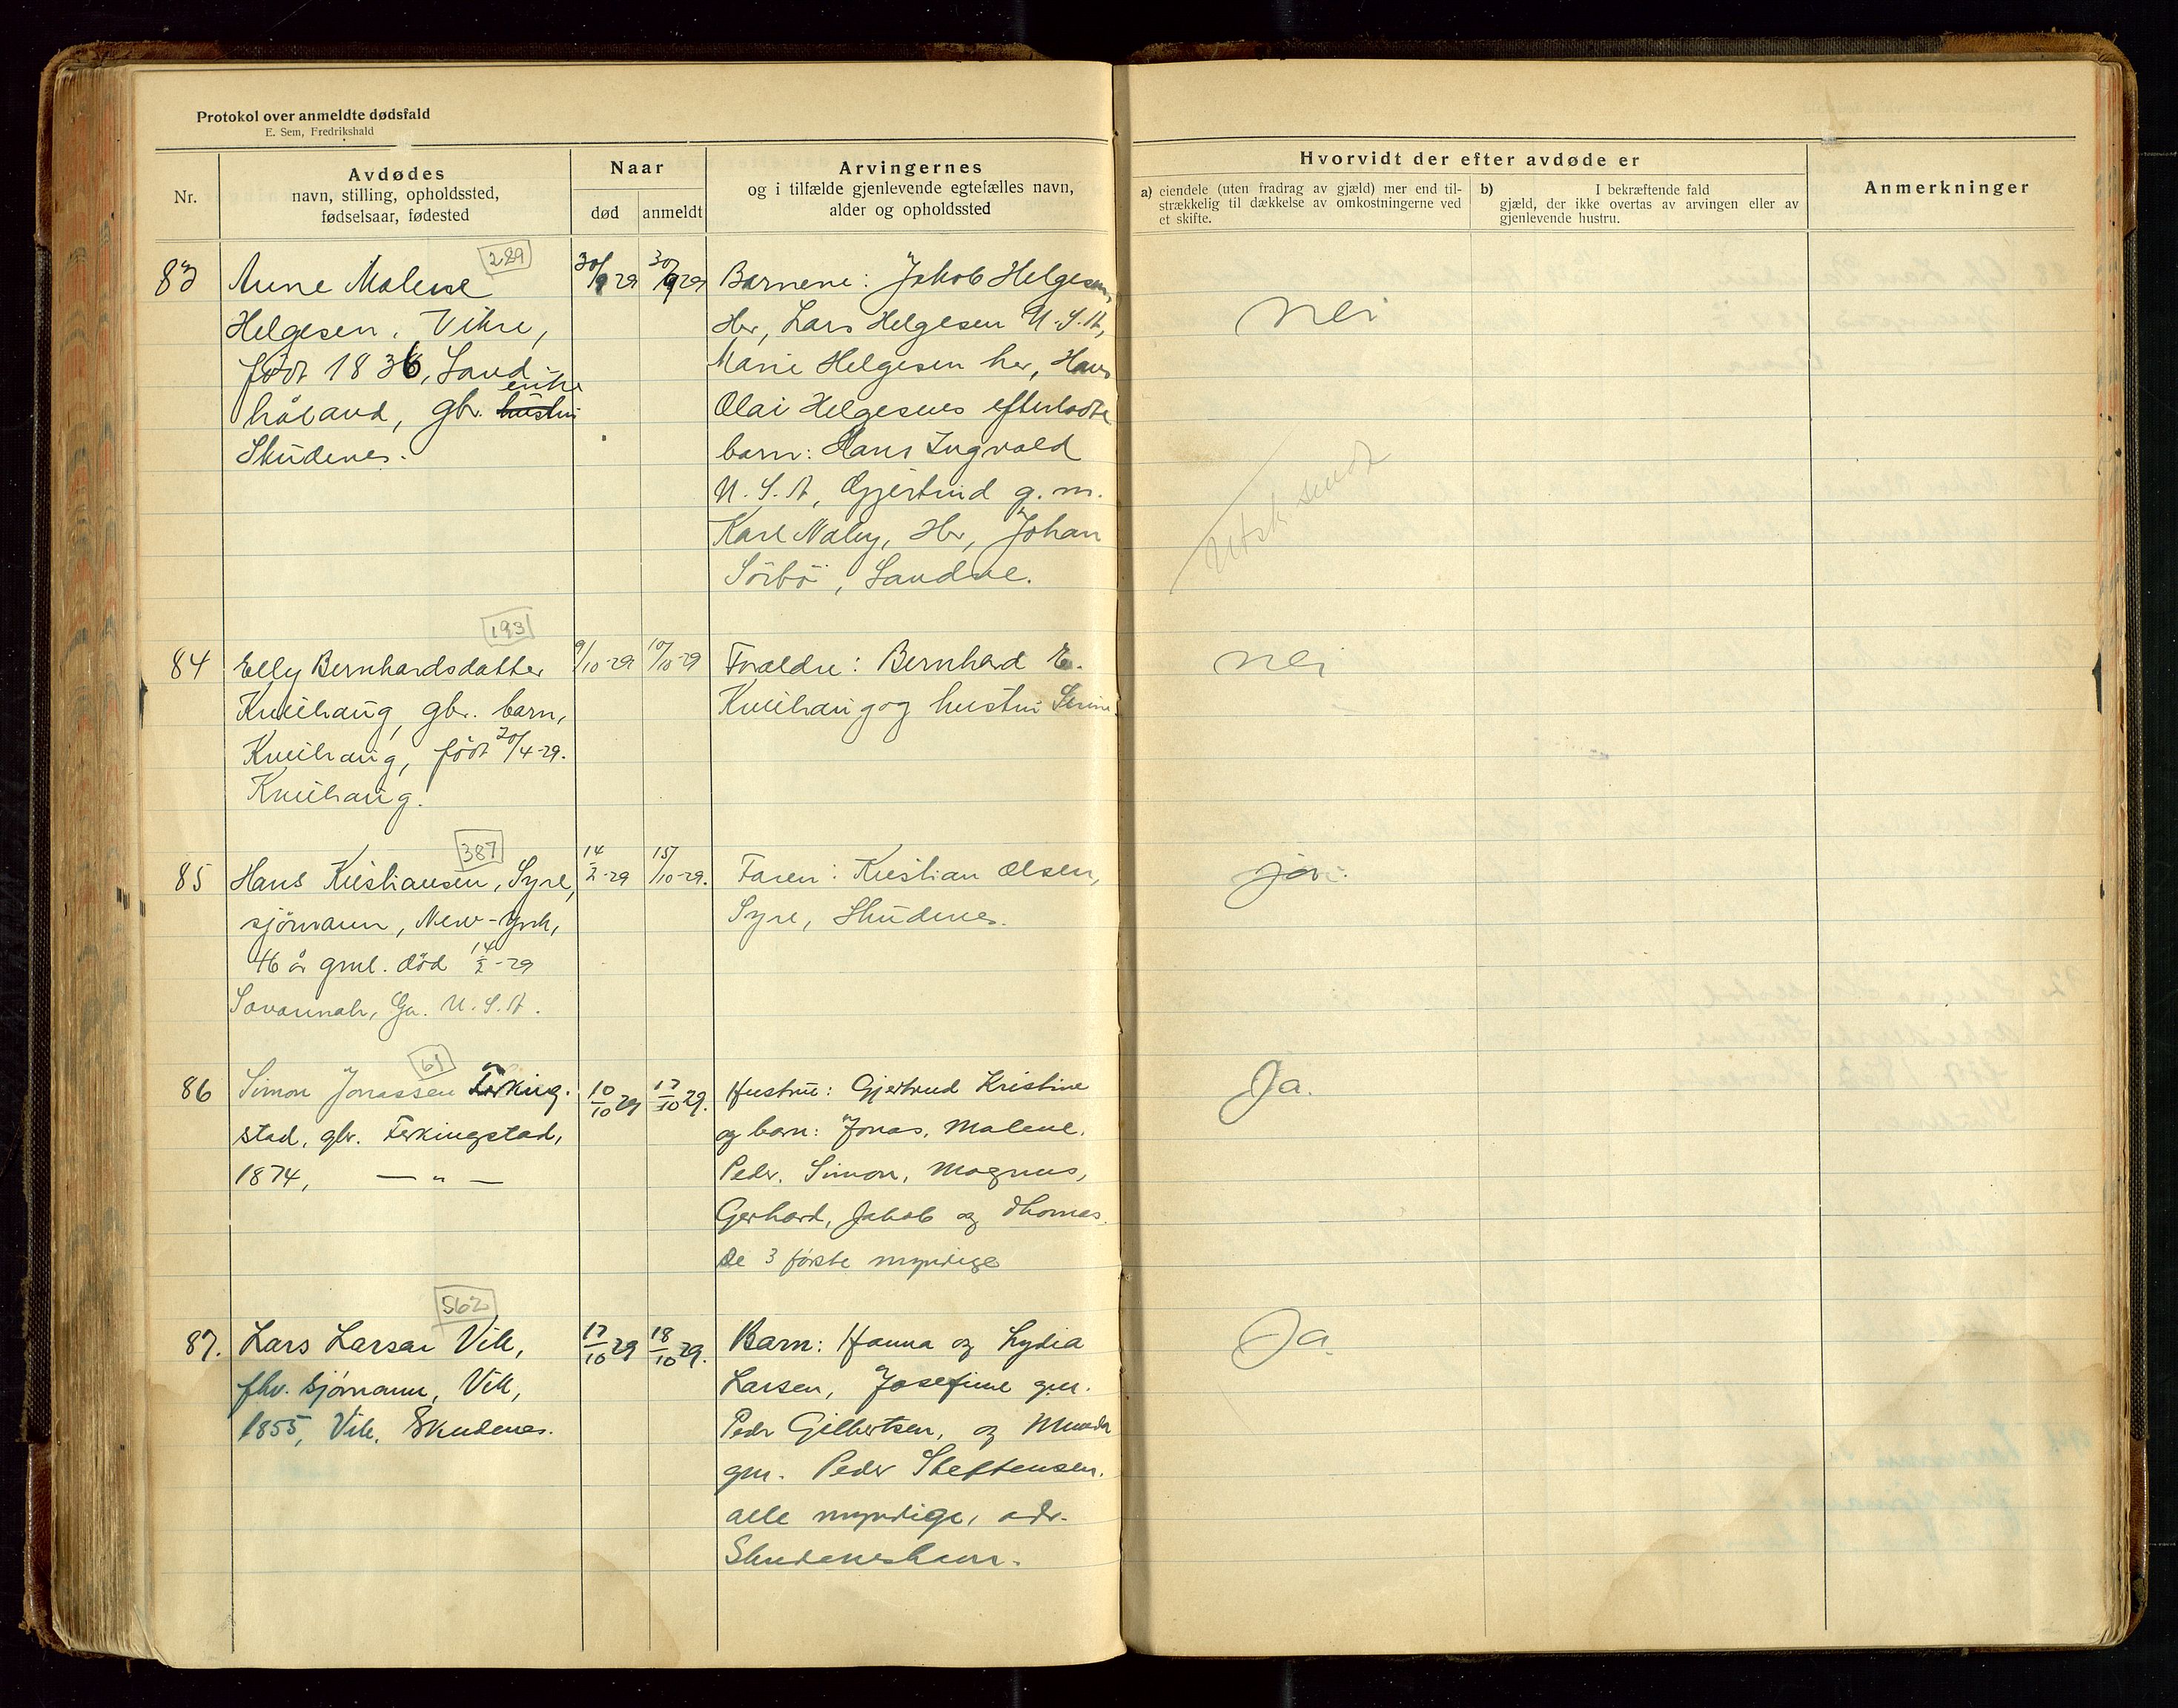 Protokol over anmeldte dødsfald
E. Sem, Fredrikshald
Nr.
Avdødes
navn, stilling, opholdssted,
fødselsaar, fødested
Naar
død
anmeldt
Arvingernes
og i tilfælde gjenlevende egtefælles navn,
alder og opholdssted
Hvorvidt der efter avdøde er
a) eiendele (uten fradrag av gjæld) mer end til-
strækkelig til dækkelse av omkostningerne ved
et skifte.
b) I bekræftende fald
gjæld, der ikke overtas av arvingen eller av
gjenlevende hustru.
Anmerkninger
289
83 Anne Malene
Helgesen, Vikre,
født 1836, Sand-
enke
håland, gbr. hustru
Skudenes.
30/9 29
30/9 29
Barnene: Jakob Helgesen,
Her, Lars Helgesen U.S.A,
Marie Helgesen her, Hans
Olai Helgesens efterladte
barn: Hans Ingvald
U.S.A, Gjertrud g.m.
Karl Naley, Her, Johan
Sörbö, Sandve.
nei
Utsk sendt
193
84 Elly Bernhardsdatter
Kneihaug, gbr. barn,
Kneihaug, født 20/4-29.
Kneihaug.
9/10-29
10/10-29
Foreldre: Bernhard E.
Kneihaug og hustru Serine
nei
387
85 Hans Kristiansen, Syre,
sjömann, New-York,
46 år gml. död 14/2-29
Savannah, Ga. U.S.A.
14/2-29
15/10-29.
Faren: Kristian Olsen,
Syre, Skudenes.
ja.
61
86 Simon Jonassen Ferking-
stad, gbr. Ferkingstad,
1874, — " —
10/10 29
17/10 29.
Hustru: Gjertrud Kristine
og barn: Jonas, Malene,
Peder, Simon, Magnus,
Gerhard, Jakob og Thomas.
De 3 første myndige
Ja.
562
87. Lars Larsen Vik,
fhv. sjømann, Vik,
1855, Vik, Skudenes.
17/10 29
18/10 29.
Barn: Hanna og Lydia
Larsen, Josefine gm.
Peder Gilbertsen, og
gm. Peder Steffensen.
alle myndige, adr.
Skudeneshavn.
Ja.